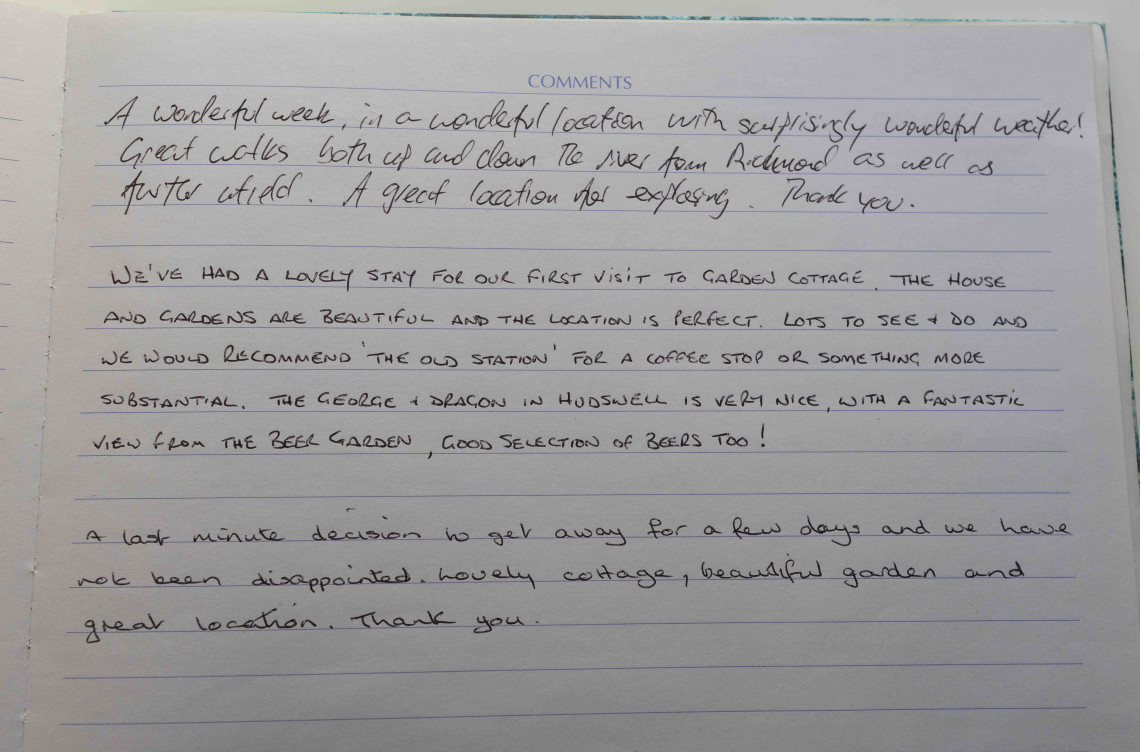 COMMENTS
A wonderful week, in a wonderful location with surprisingly wonderful weather!
Great walks both up and down the river from Richmond as well as
further afield. A great location for exploring. Thank you.
WE'VE HAD A LOVELY STAY FOR OUR FIRST VISIT TO GARDEN COTTAGE. THE HOUSE
AND GARDENS ARE BEAUTIFUL AND THE LOCATION IS PERFECT. LOTS TO SEE + DO AND
WE WOULD RECOMMEND 'THE OLD STATION' FOR A COFFEE STOP OR SOMETHING MORE
SUBSTANTIAL. THE GEORGE + DRAGON IN HUDSWELL IS VERY NICE, WITH A FANTASTIC
VIEW FROM THE BEER GARDEN, GOOD SELECTION OF BEERS TOO!
A last minute decision to get away for a few days and we have
not been disappointed. Lovely cottage, beautiful garden and
great location. Thank you.